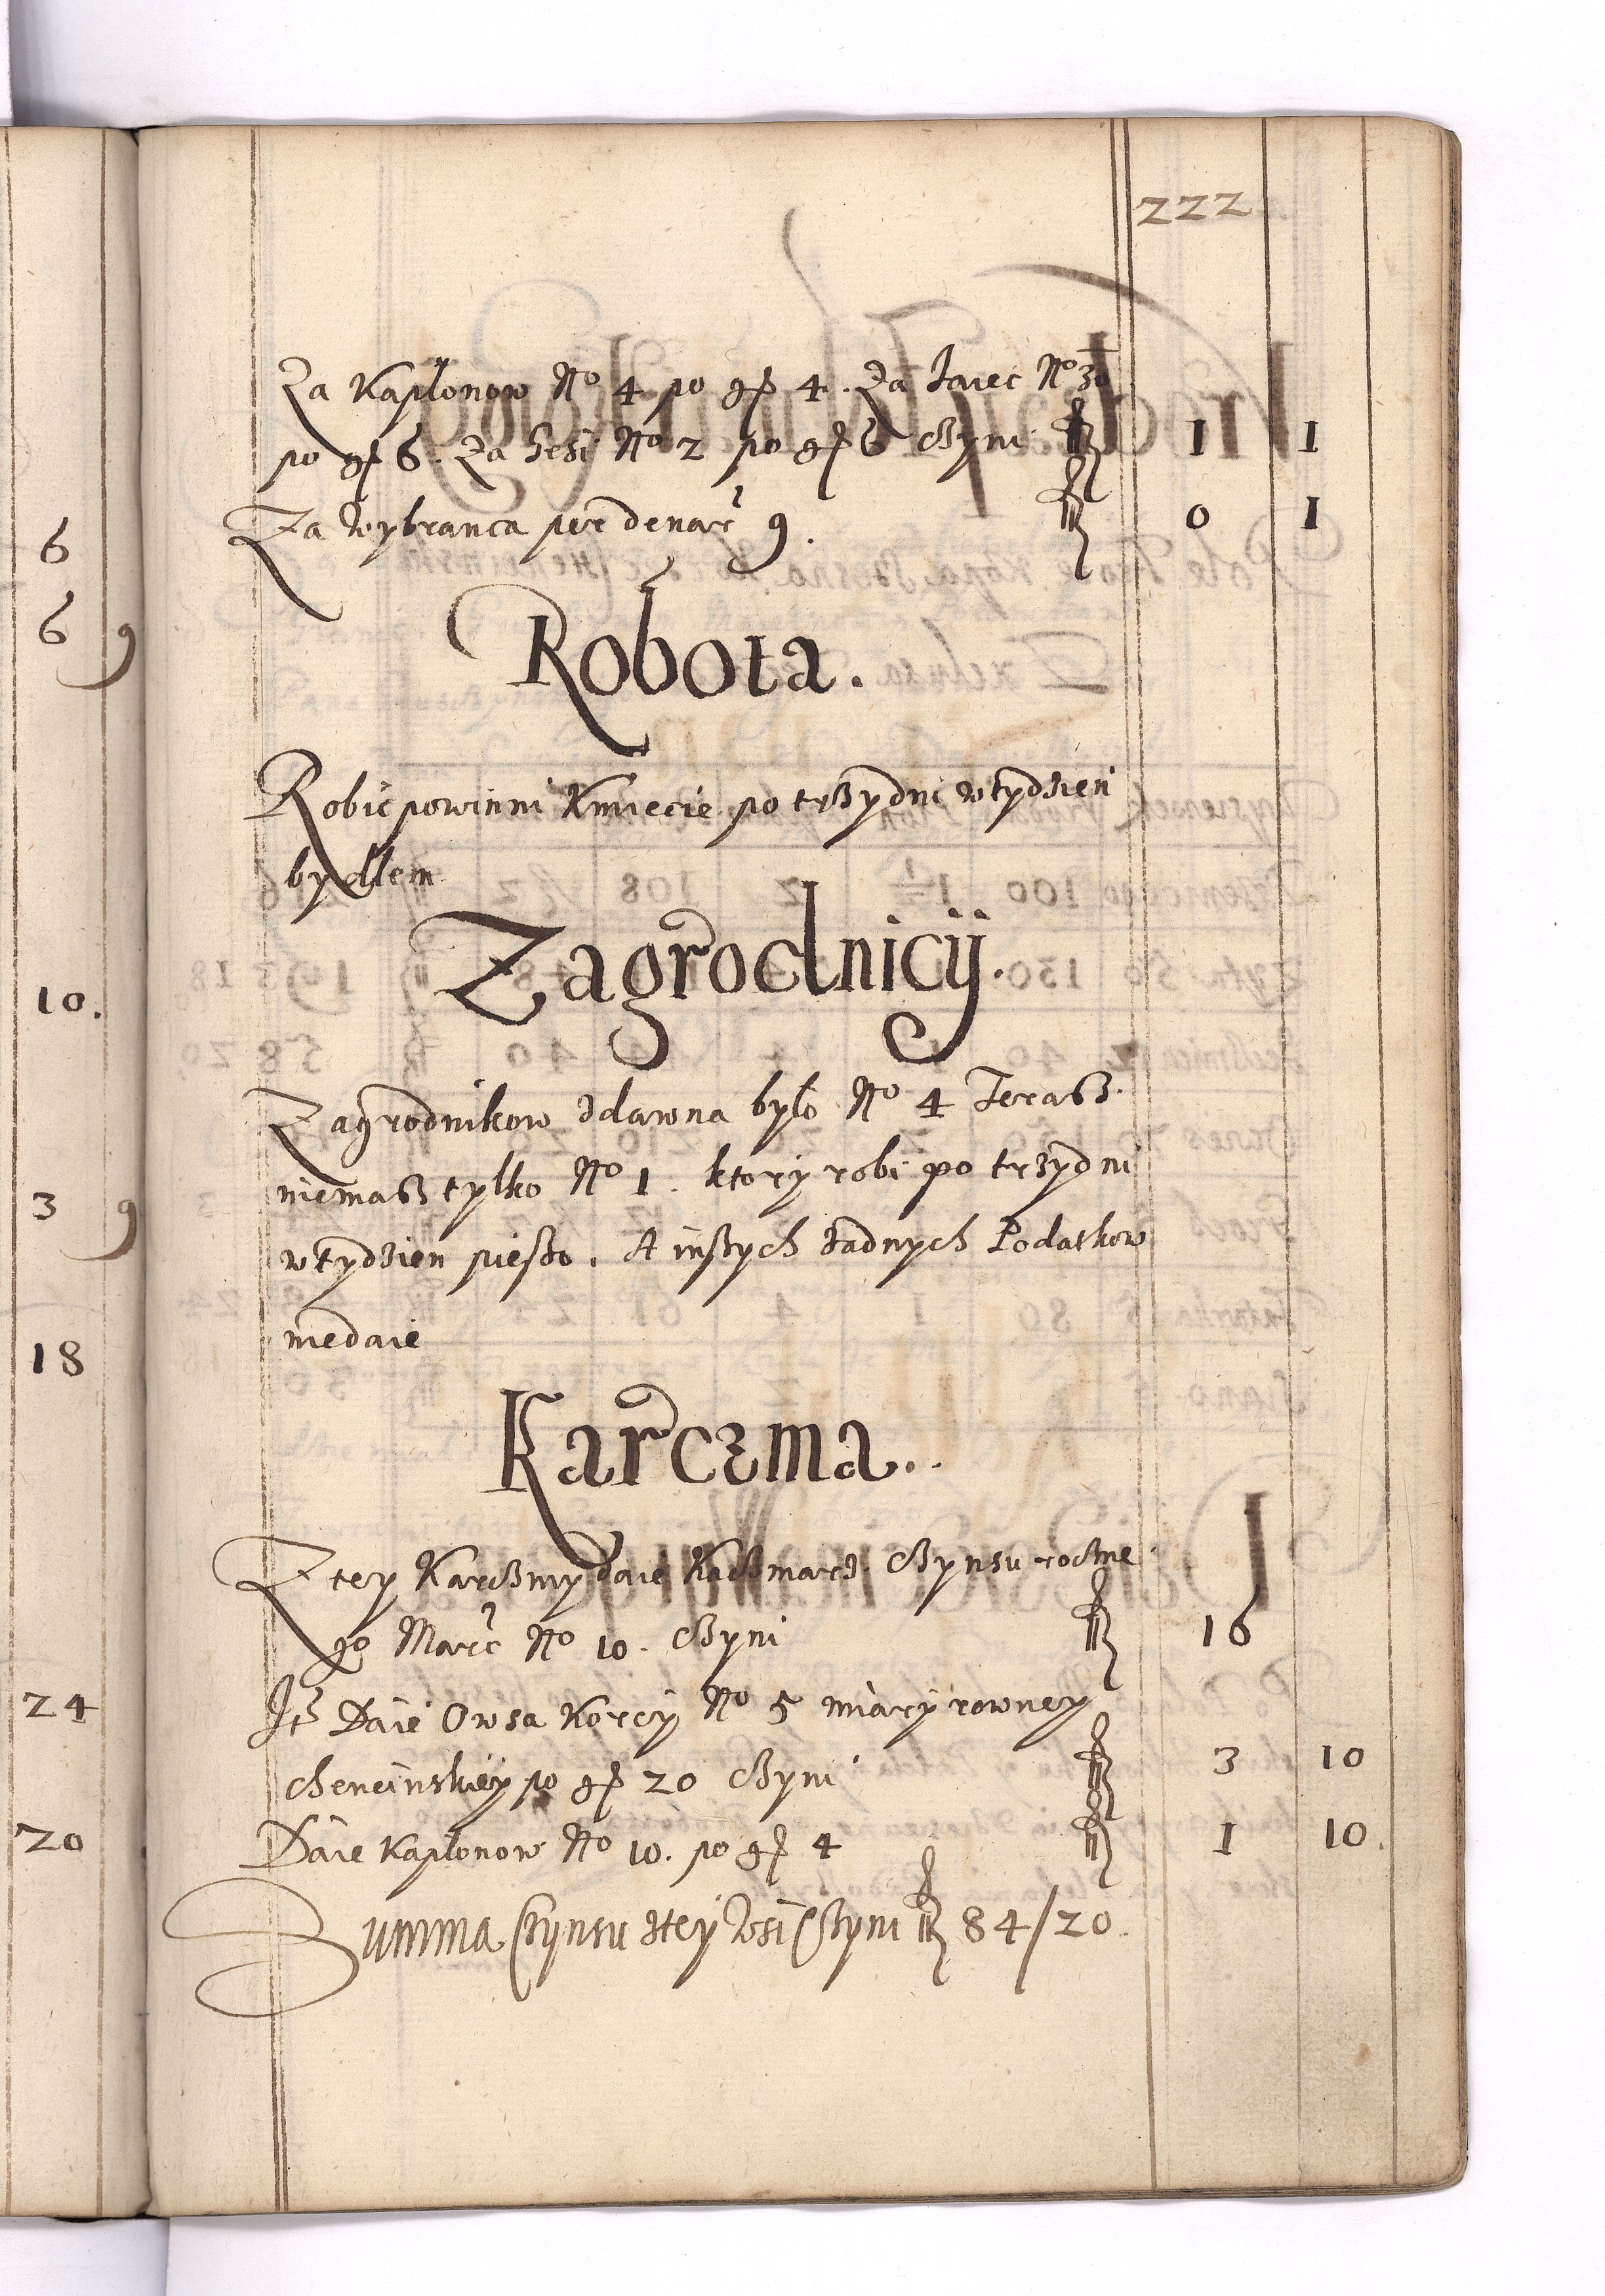 222
Za Kapłonow No 4 po gr 4. Za Jaiec No 30
po gr 6. Za Gesi No 2 po gr 6 czyni fl 1 1
Za Wybranca per denar 9. fl 0 1
Robota.
Robic powinni Kmiecie po trzy dni w tydzien
bydłem
Zagrodnicy.
Zagrodnikow zdawna było No 4 Terasz
niemasz tylko No 1. ktory robi po trzy dni
w tydzien pieszo. A inszych żadnych Podatkow
niedaie
Karczma.
Z tey Karczmy daie Kaczmarz Czynsu roczne
go Marc No 10. Czyni fl 16
It Daie Owsa Korcy No 5 miary rowney
chencinskiey po gr 20 czyni fl 3 10
Daie Kapłonow No 10. po gr 4 fl 1 10.
Summa Czynsu ztey Wsi Czyni fl 84/20.
6
6 9
10.
3 9
18
24
20